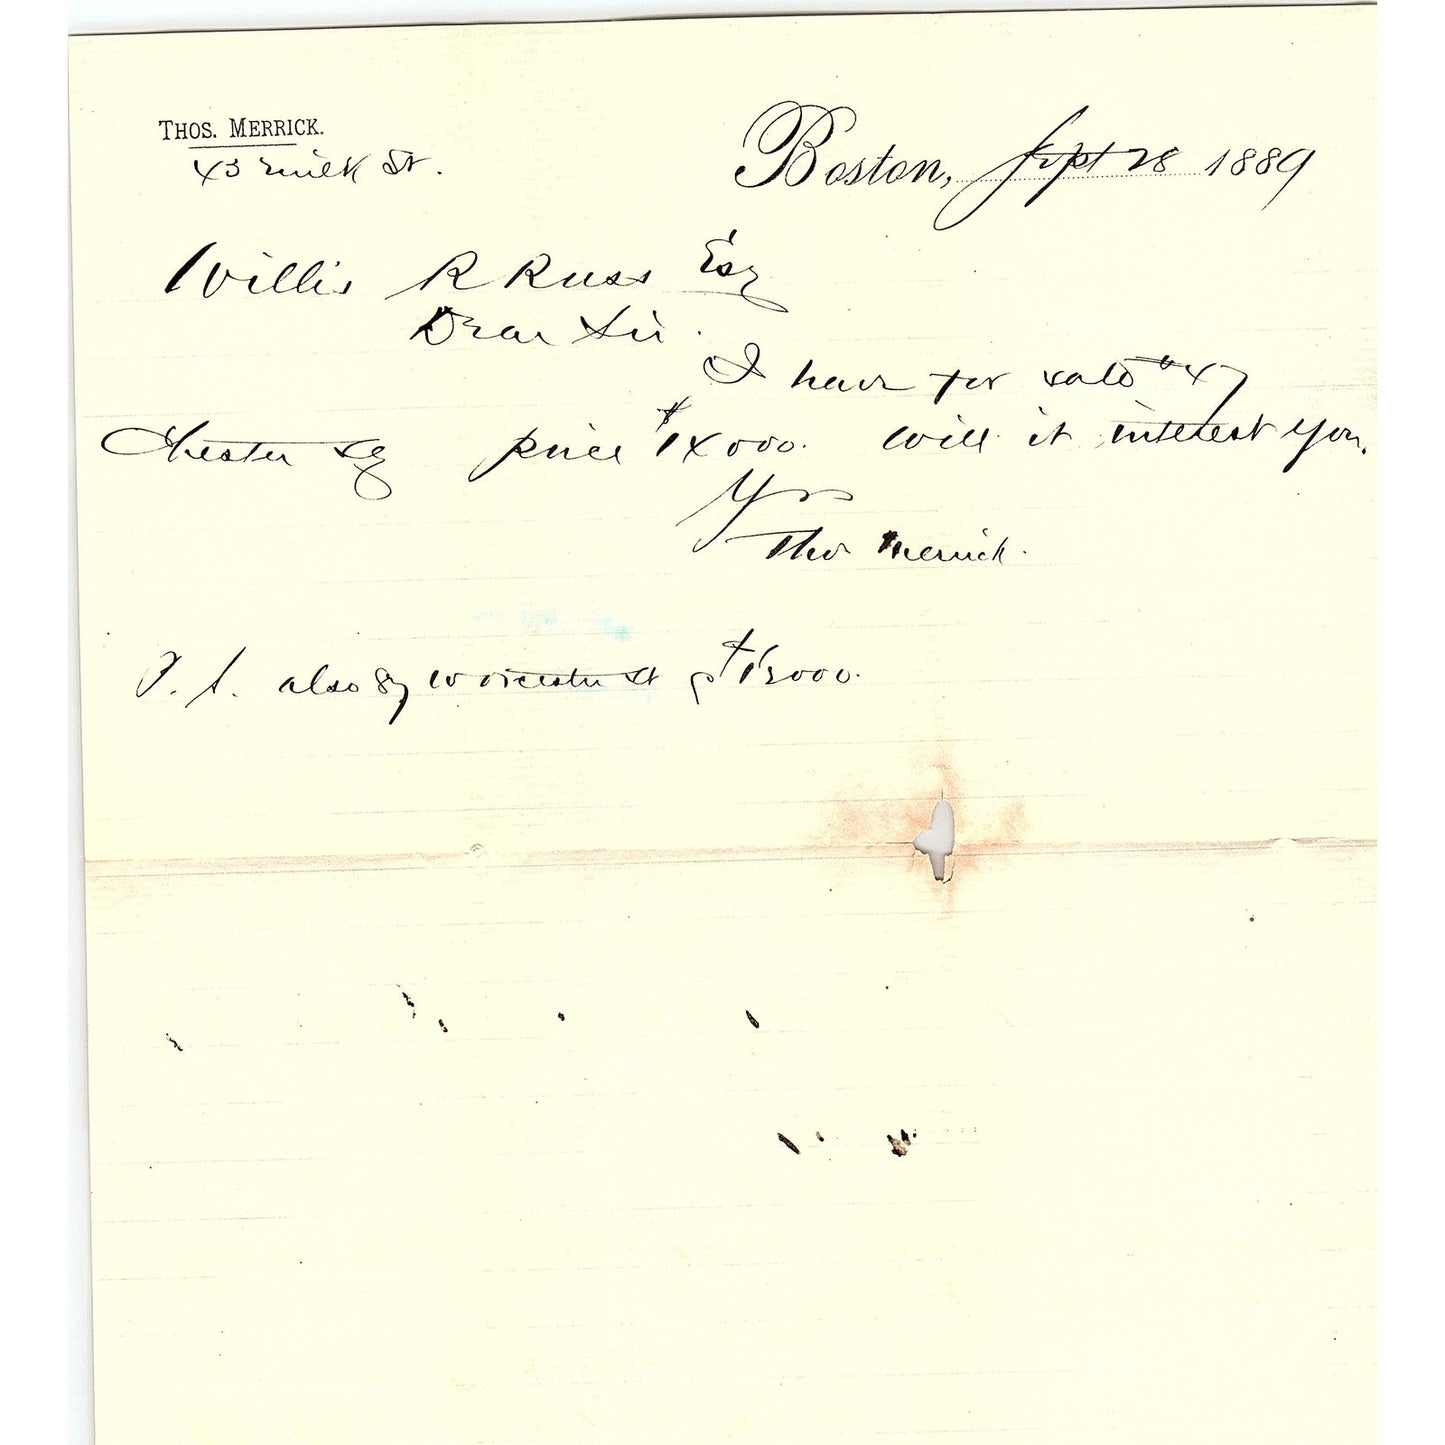 THOS. MERRICK.
43 Milk St.
Boston, Sept 28 1889
Willis R Russ Esq
Dear Sir.
I have for sale # 47
Chester Sq price $14000. will it interest you.
Yrs
Thos Merrick.
P. S. also 87 Worcester St p $13000.